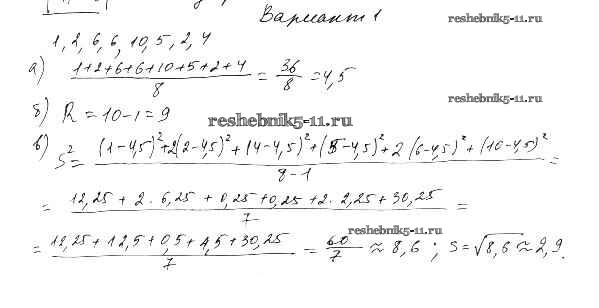 Вариант 1
reshebnik5-11.ru
1, 2, 6, 6, 10, 5, 2, 4
а) (1+2+6+6+10+5+2+4)/8 = 36/8 = 4,5
reshebnik5-11.ru
б) R = 10-1 = 9
reshebnik5-11.ru
в) S² = ((1-4,5)²+2(2-4,5)²+(4-4,5)²+(5-4,5)²+2(6-4,5)²+(10-4,5)²)/(8-1) =
= (12,25 + 2·6,25 + 0,25 + 0,25 + 2·2,25 + 30,25)/7 =
reshebnik5-11.ru
= (12,25 + 12,5 + 0,5 + 4,5 + 30,25)/7 = 60/7 ≈ 8,6 ; S = √8,6 ≈ 2,9.